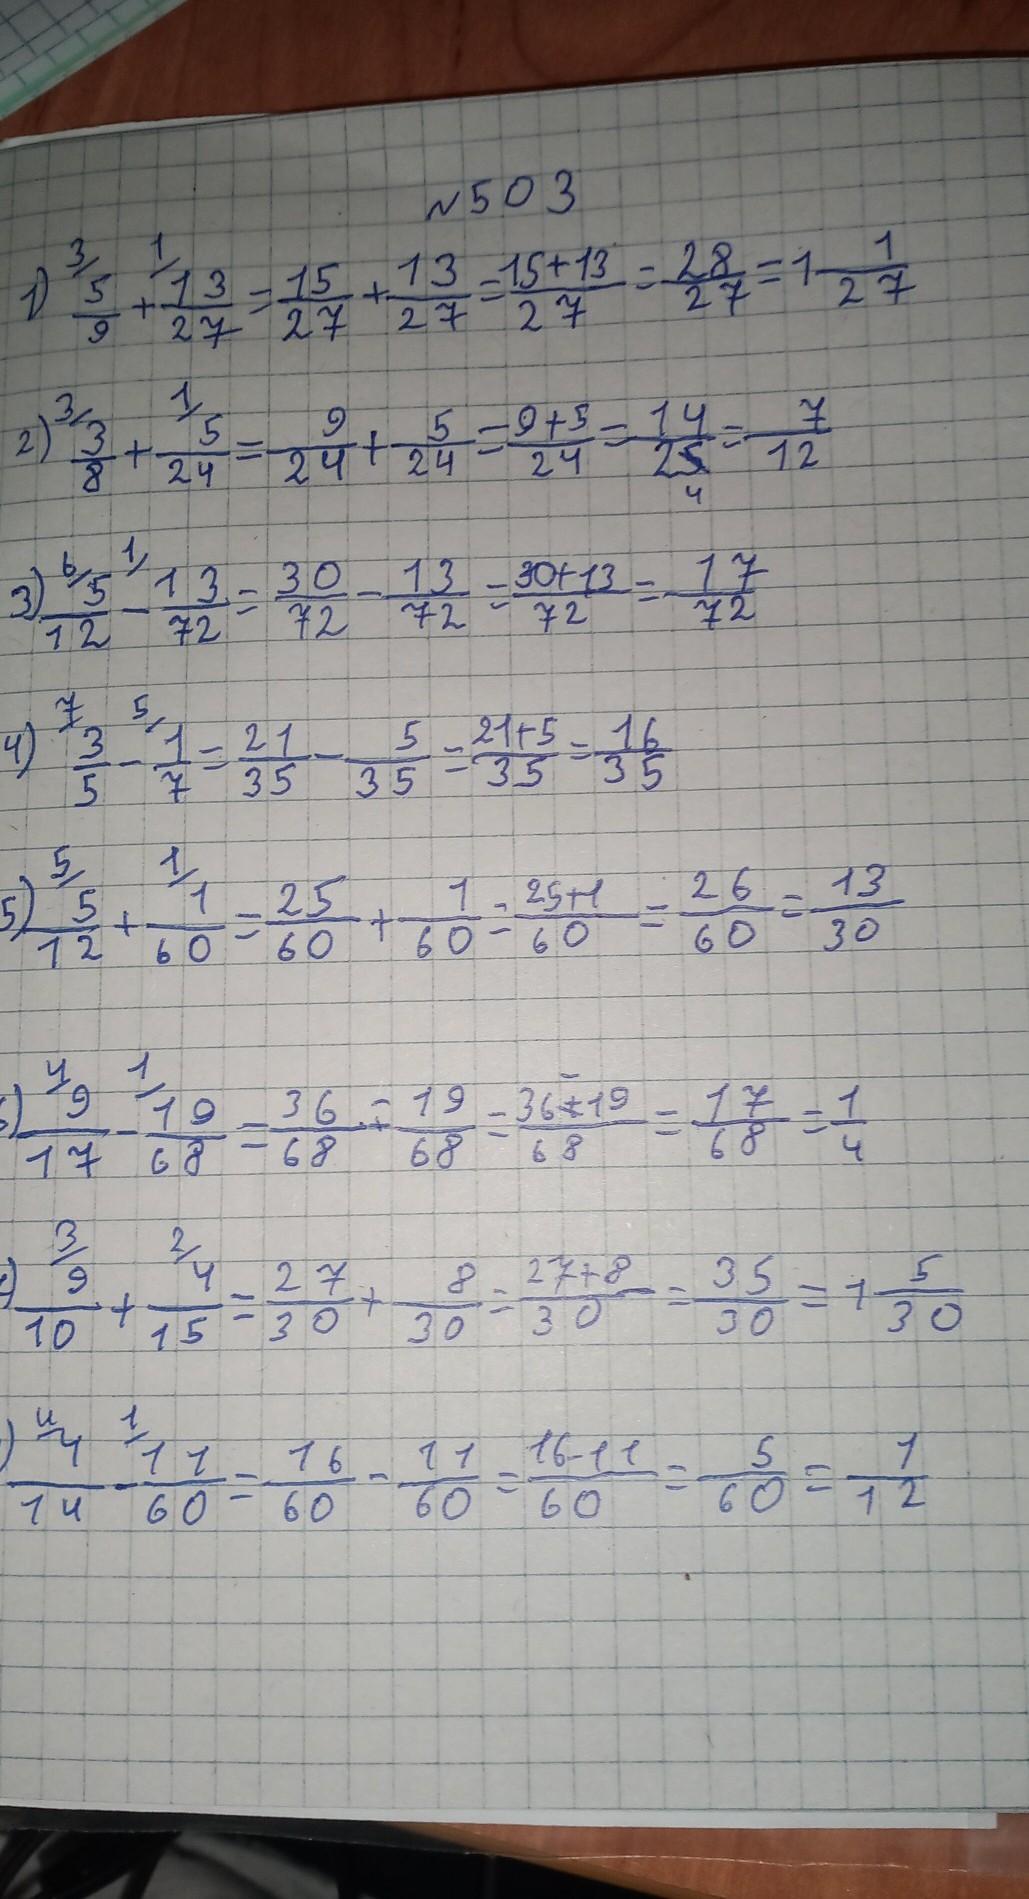 №503
1) 3/ 5/9 + 1/ 13/27 = 15/27 + 13/27 = 15+13/27 = 28/27 = 1 1/27
2) 3/ 3/8 + 1/ 5/24 = 9/24 + 5/24 = 9+5/24 = 14/24 = 7/12
3) 6/ 5/12 - 1/ 13/72 = 30/72 - 13/72 = 30+13/72 = 17/72
4) 7 3/5 - 5/ 1/7 = 21/35 - 5/35 = 21+5/35 = 16/35
5) 5/ 5/12 + 1/ 1/60 = 25/60 + 1/60 = 25+1/60 = 26/60 = 13/30
) 4/ 9/17 - 1/ 19/68 = 36/68 - 19/68 = 36-19/68 = 17/68 = 1/4
) 3/ 9/10 + 2/ 4/15 = 27/30 + 8/30 = 27+8/30 = 35/30 = 1 5/30
) 4/ 4/14 - 1/ 11/60 = 16/60 - 11/60 = 16-11/60 = 5/60 = 1/12